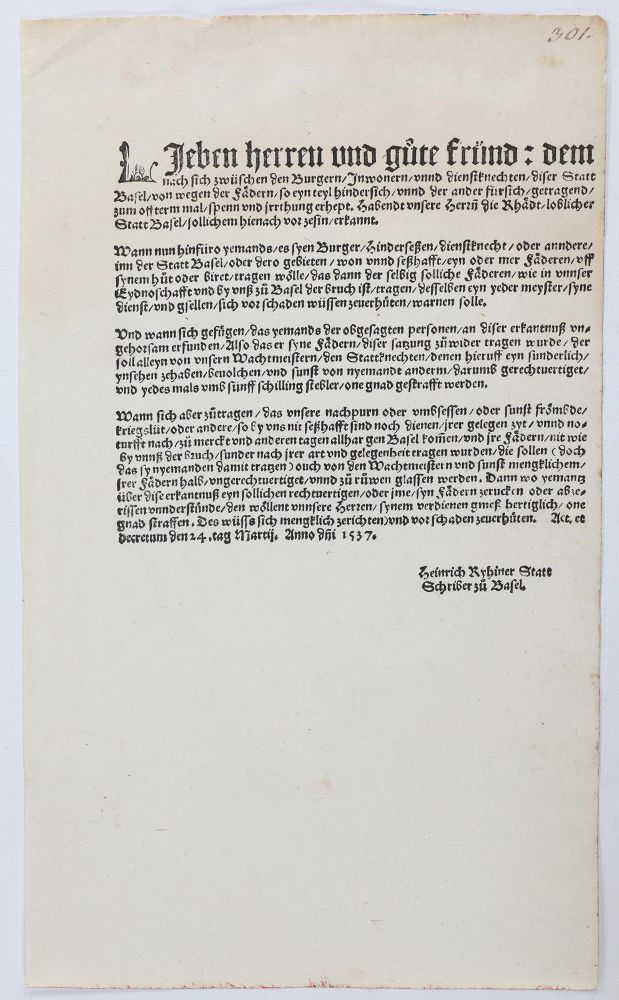 301.
LJeben herren vnd gůte fründ: dem
nach sich zwüschen den Burgern/Jnwonern/vnnd dienstknechten/diser Statt
Basel/von wegen der Fädern/so eyn teyl hindersich/vnnd der ander fürsich/getragend/
zum offterm mal/spenn vnd jrrthung erhept. Habendt vnsere Herrñ die Rhådt/loblicher
Statt Basel/sollichem hienach vor zesin/erkannt.
Wann nun hinfüro yemands/es syen Burger/Hinderseßen/dienstknecht/oder anndere/
inn der Statt Basel/oder dero gebieten/won vnnd seßhafft/eyn oder mer Fäderen/vff
synem hůt oder biret/tragen wölle/das dann der selbig solliche Fäderen/wie in vnnser
Eydnoschafft vnd by vnß zů Basel der bruch ist/tragen/desselben eyn yeder meyster/syne
dienst/vnd gsellen/sich vor schaden wüssen zeuerhüten/warnen solle.
Vnd wann sich gefügen/das yemands der obgesagten personen/an diser erkantnuß vn-
gehorsam erfunden/Also das er syne Fådern/diser satzung zůwider tragen wurde/der
soll alleyn von vnsern Wachtmeistern/den Stattknechten/denen hieruff eyn sunderlich/
ynsehen zehaben/beuolchen/vnd sunst von nyemandt anderm/darumb gerechtuertiget/
vnd yedes mals vmb fünff schilling stebler/one gnad gestrafft werden.
Wann sich aber zůtragen/das vnsere nachpurn oder vmbsessen/oder sunst frömbde/
kriegslüt/oder andere/so by vns nit seßhafft sind noch dienen/jrer gelegen zyt/vnnd no-
turfft nach/zů merckt vnd anderen tagen allhar gen Basel kom̃en/vnd jre Fådern/nit wie
by vnnß der bruch/sunder nach jrer art vnd gelegenheit tragen wurden/die sollen (doch
das sy nyemanden damit tratzen) ouch von den Wachtmeistern vnd sunst mengklichem/
jrer Fådern halb/vngerechtuertiget/vnnd zů růwen glassen werden. Dann wo yemantz
über dise erkantnuß eyn sollichen rechtuertigen/oder jme/syn Fådern zerucken oder abze-
rissen vnnderstünde/den wöllent vnnsere Herren/synem verdienen gmeß hertiglich/one
gnad straffen. Des wüsse sich mengklich zerichten/vnd vor schaden zeuerhüten. Act. et
decretum den 24. tag Martij. Anno dñi 1537.
Heinrich Ryhiner Statt
Schriber zů Basel.